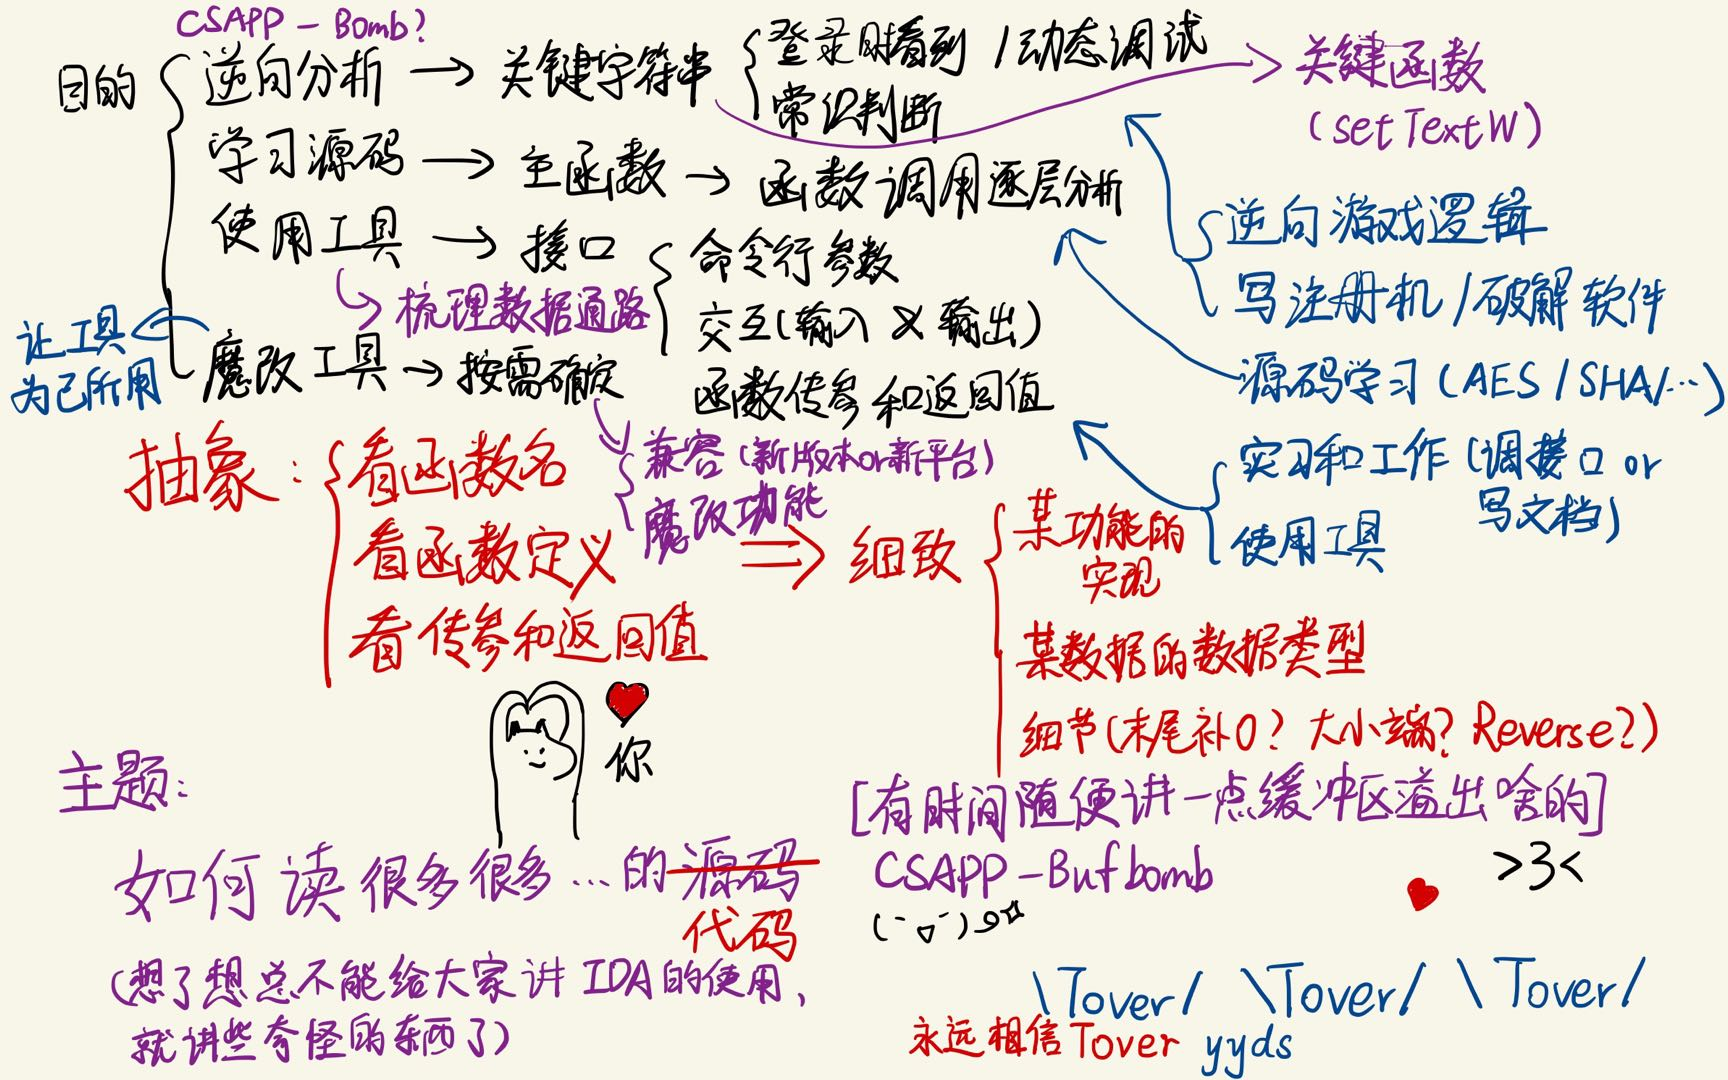 CSAPP - Bomb?
目的
逆向分析 → 关键字符串
登录时看到 / 动态调试
常识判断
关键函数
(setTextW)
学习源码 → 主函数 → 函数调用逐层分析
使用工具 → 接口
命令行参数
交互(输入 X 输出)
函数传参和返回值
梳理数据通路
让工具
为己所用
魔改工具 → 按需确定
兼容(新版本or新平台)
魔改功能
逆向游戏逻辑
写注册机/破解软件
源码学习(AES/SHA/…)
实习和工作(调接口 or
写文档)
使用工具
抽象:
看函数名
看函数定义
看传参和返回值
⇒ 细致
某功能的
实现
某数据的数据类型
细节(末尾补0? 大小端? Reverse?)
你
主题:
如何读很多很多…的源码
代码
(想了想总不能给大家讲IDA的使用,
就讲些奇怪的东西了)
[有时间随便讲一点缓冲区溢出啥的]
CSAPP-Bufbomb
>3<
\Tover/ \Tover/ \Tover/
永远相信Tover yyds